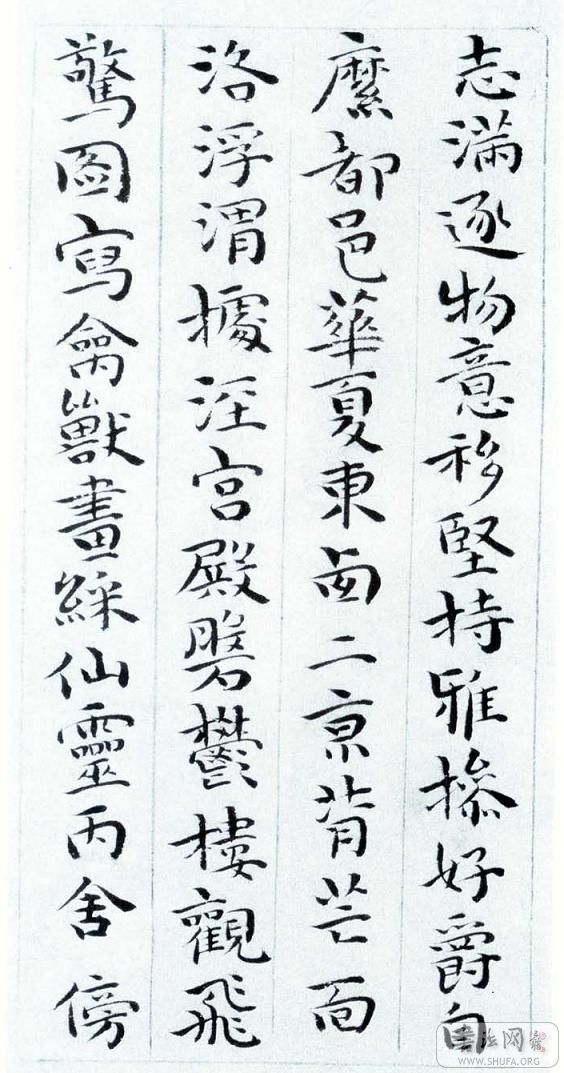 志滿逐物意移堅持雅操好爵自
縻都邑華夏東西二京背芒面
洛浮渭據涇宮殿磐鬱樓觀飛
驚圖寫禽獸畫綵仙靈丙舍傍
书法网
WWW.SHUFA.ORG